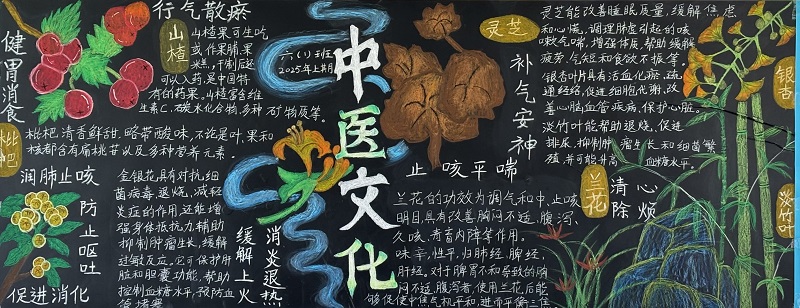 健胃消食
行气散瘀
山楂
山楂果可生吃
或作果脯果
糕,干制后还
可以入药,是中国特
有的药果。山楂富含维
生素C.碳水化合物,多种矿物质等。
枇杷
枇杷清香鲜甜.略带酸味.不论是叶.果和
核都含有扁桃苷以及多种营养元素。
润肺止咳
防止呕吐
促进消化
金银花具有对抗细
菌病毒,退烧,减轻
炎症的作用,还能增
强身体抵抗力,辅助
抑制肿瘤生长,缓解
过敏反应,它可保护肝
脏和胆囊功能,帮助
控制血糖水平,预防血
缓解上火
消炎退热
六(1)班
2025年上期
中医文化
止咳平喘
兰花的功效为调气和中.止咳
明目,具有改善胸闷不适.腹泻、
久咳.青盲内障等作用。
味辛,性平,归肺经.脾经,
肝经,对于脾胃不和导致的胸
闷不适.腹泻者,使用兰花后能
灵芝
补气安神
灵芝能改善睡眠质量,缓解焦虑
和心慌,调理肺虚引起的咳
嗽气喘,增强体质,帮助缓解
疲劳.气短和食欲不振等。
银杏叶片具有活血化瘀,疏
通经络,促进细胞代谢,改
善心脑血管疾病,保护心脏。
淡竹叶能帮助退烧.促进
排尿,抑制肿瘤生长和细菌繁
殖,并可能升高血糖水平。
兰花
清心除烦
银杏
淡竹叶